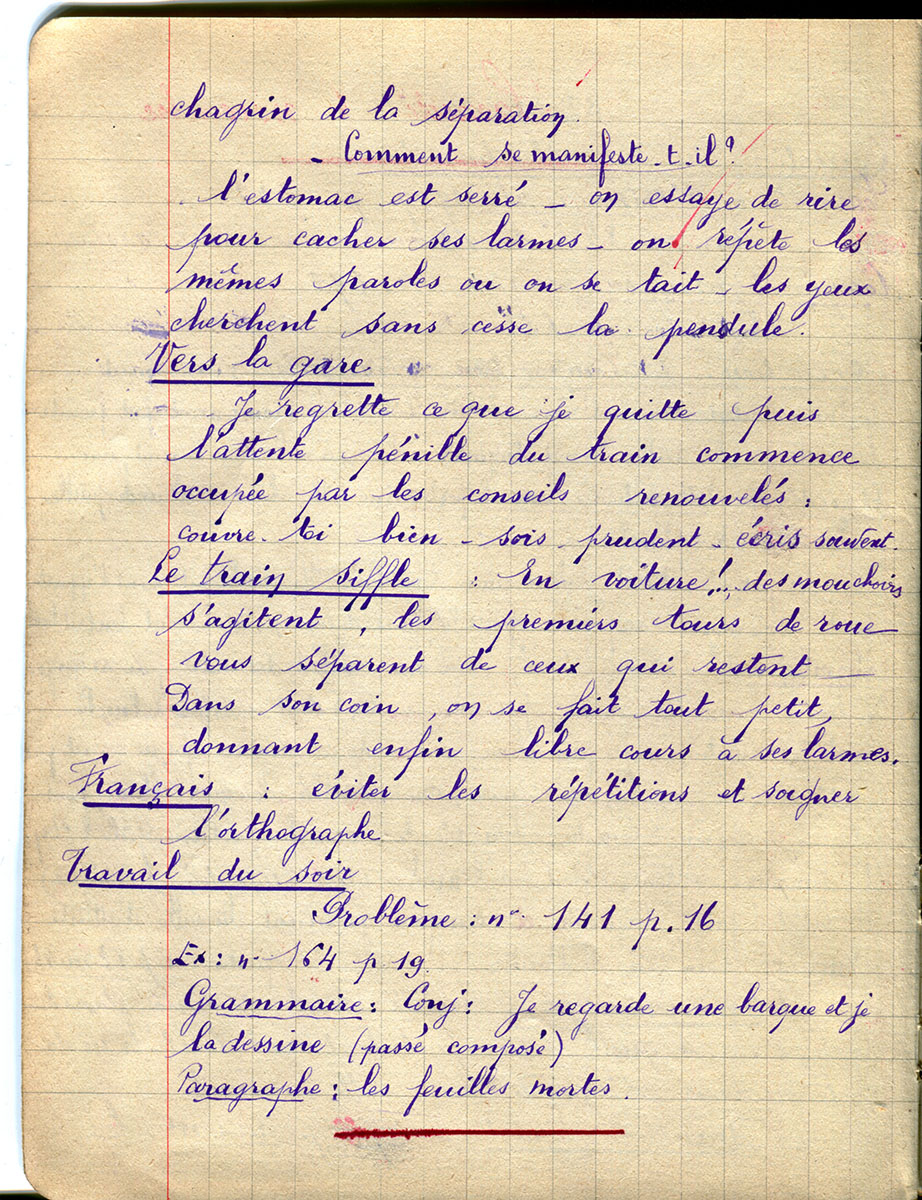 chagrin de la séparation.
- Comment se manifeste-t-il?
l'estomac est serré - on essaye de rire
pour cacher ses larmes - on répète les
mêmes paroles ou on se tait - les yeux
cherchent sans cesse la pendule.
Vers la gare
Je regrette ce que je quitte puis
l'attente pénible du train commence
occupée par les conseils renouvelés :
couvre-toi bien - sois prudent - écris souvent.
Le train siffle : En voiture!... des mouchoirs
s'agitent, les premiers tours de roue
vous séparent de ceux qui restent
Dans son coin, on se fait tout petit,
donnant enfin libre cours à ses larmes.
Français : éviter les répétitions et soigner
l'orthographe
Travail du soir
Problème : n° 141 p. 16
Ex : n° 164 p 19.
Grammaire : Conj : Je regarde une barque et je
la dessine (passé composé)
Paragraphe : les feuilles mortes.